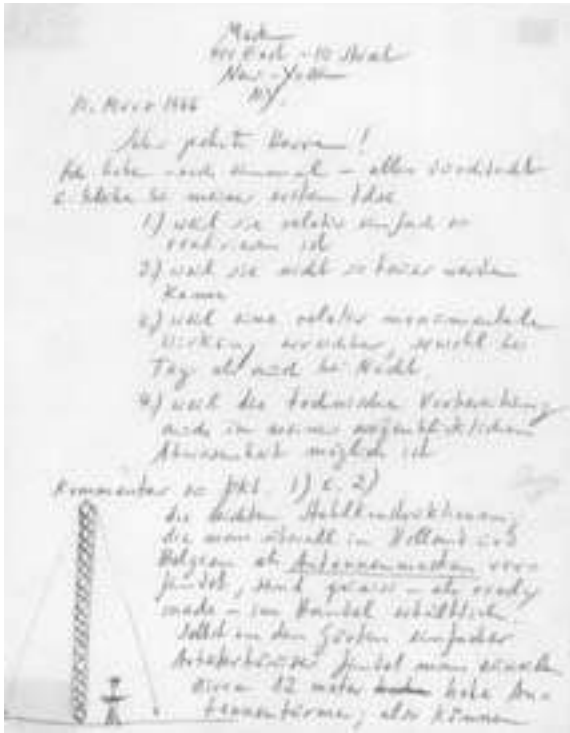 Mack
East - 10 Street
New-York
NY.
11. März 1966
Sehr geehrte Herren!
Ich habe - noch einmal - alles
bei meiner ersten Idee
1) weil sie relativ einfach zu
ist
2) weil sie nicht so teuer werden
kann
3) weil eine relativ monumentale
Wirkung erreichbar, sowohl bei
Tag als auch bei Nacht
4) weil die technische Vorbereitung
auch in meiner augenblicklichen
Abwesenheit möglich ist
Kommentar zu Pkt. 1) u. 2)
die leichten Stahlkonstruktionen,
die man überall in Holland und
Belgien als Antennenmasten vor-
findet, sind - als ready
made - im Handel erhältlich.
Selbst in den Gärten einfacher
Arbeiterhäuser findet man einzelne
circa 12 meter hohe An-
tennentürme, also können